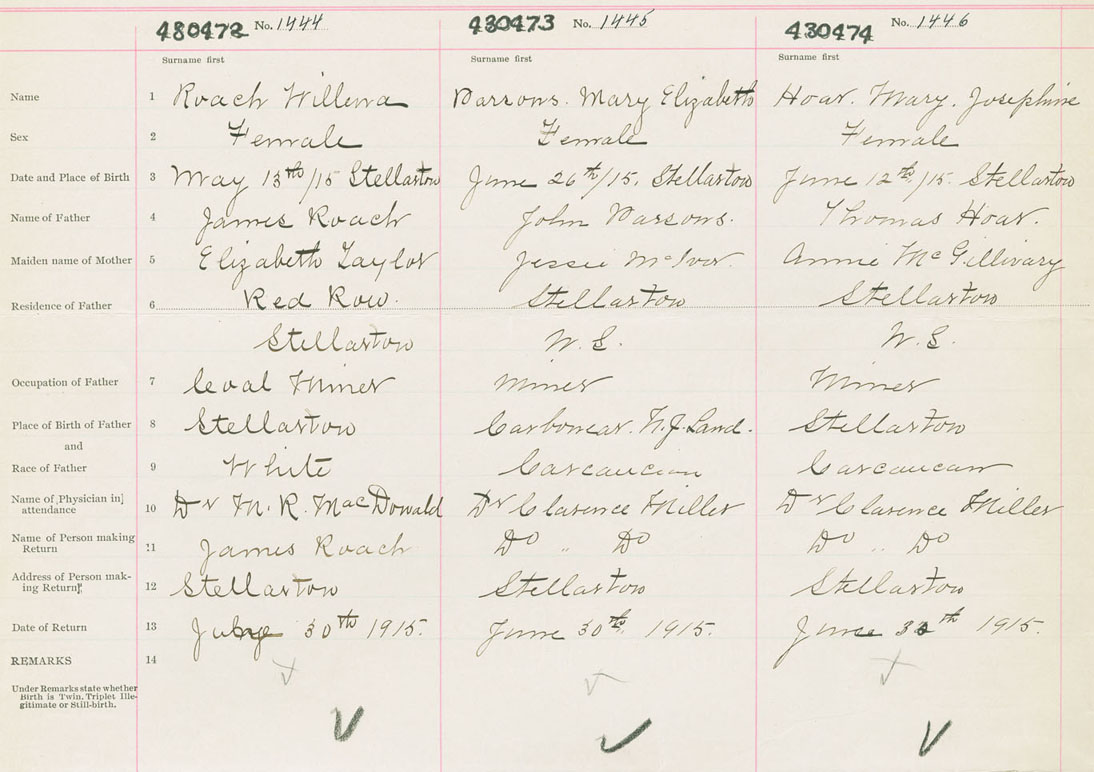 430472 No. 1444 430473 No. 1445 430474 No. 1446
Surname first Surname first Surname first
Name 1 Roach Willena Parsons. Mary Elizabeth Hoar. Mary. Josephine
Sex 2 Female Female Female
Date and Place of Birth 3 May 13th/15 Stellarton June 26th/15. Stellarton June 12th/15. Stellarton
Name of Father 4 James Roach John Parsons. Thomas Hoar.
Maiden name of Mother 5 Elizabeth Taylor Jessie McIvor. Annie McGillivary
Residence of Father 6 Red Row. Stellarton Stellarton
Stellarton N.S. N.S.
Occupation of Father 7 Coal Miner Miner Miner
Place of Birth of Father 8 Stellarton Carbonear. N.F. Land. Stellarton
and
Race of Father 9 White Carcaucian Carcaucian
Name of Physician in attendance 10 Dr M. R. MacDonald Dr Clarence Miller Dr Clarence Miller
Name of Person making Return 11 James Roach Do " Do Do " Do
Address of Person making Return 12 Stellarton Stellarton Stellarton
Date of Return 13 30th 1915. June 30th. 1915. June 30th 1915.
REMARKS 14
Under Remarks state whether
Birth is Twin, Triplet Ille-
gitimate or Still-birth.